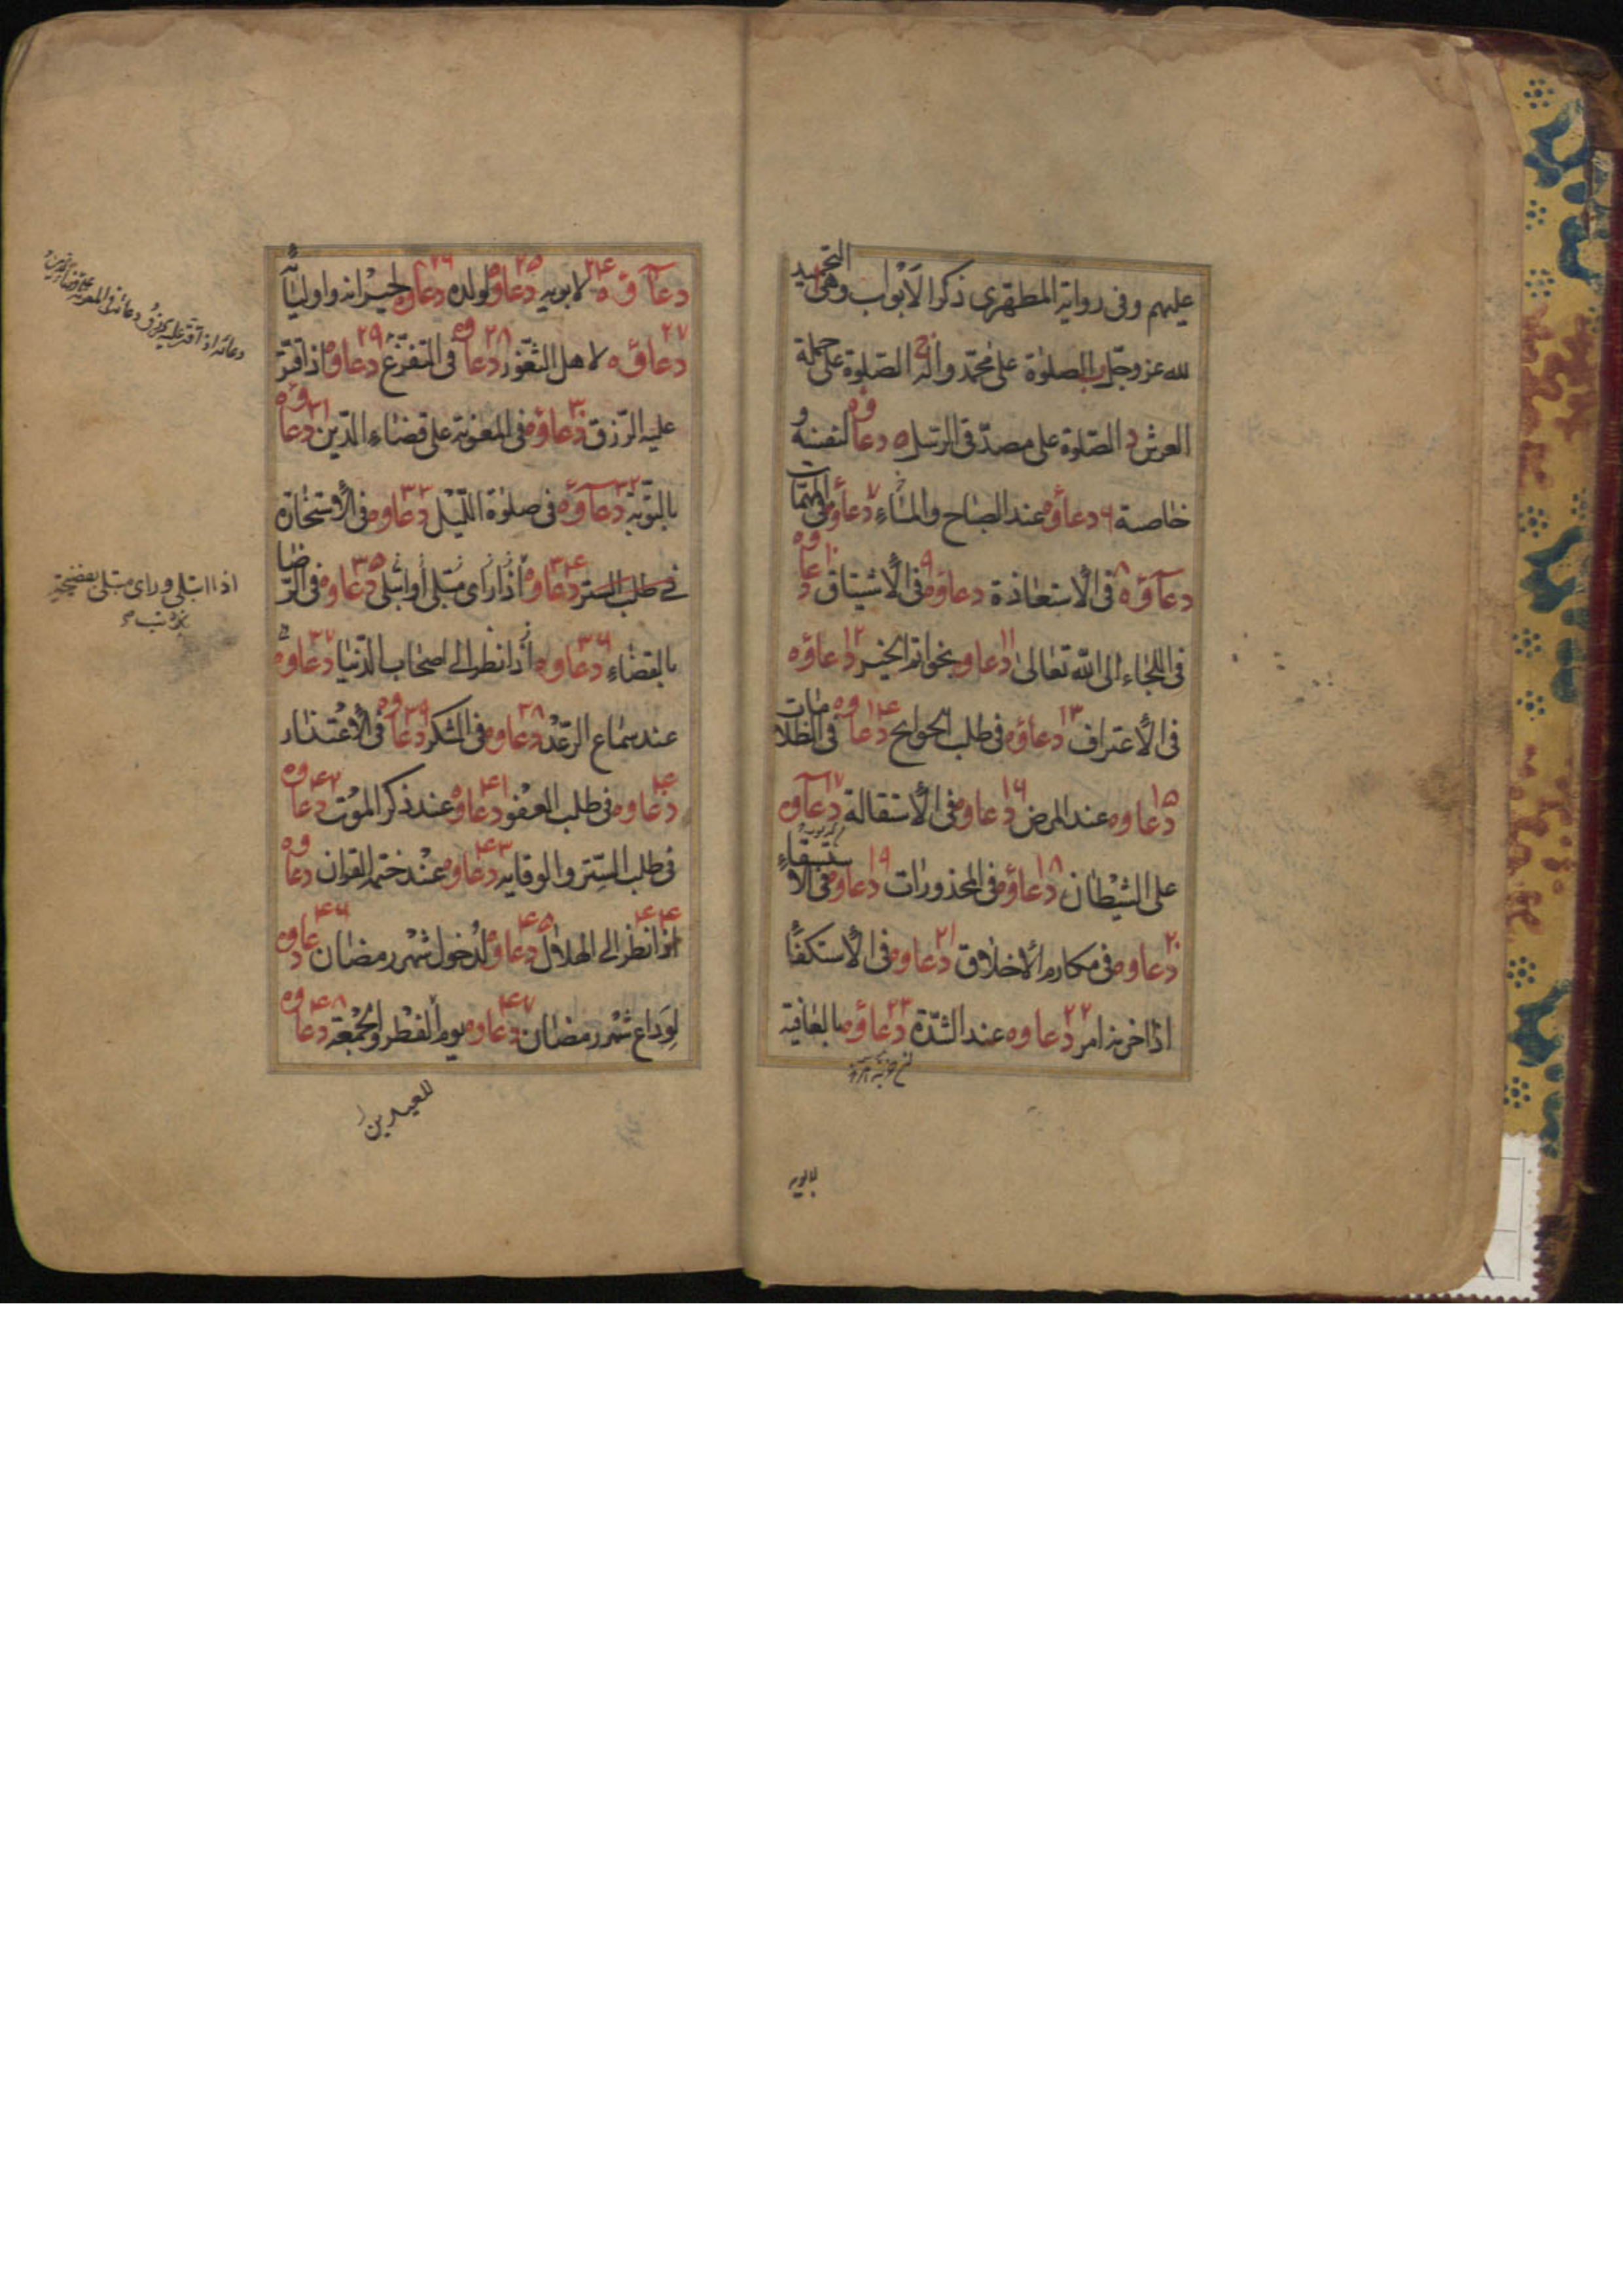 عليهم وفى رواية المطهّرى ذكر الاَبْواب وهى التحميد
لله عزوجلّ ب الصلوٰة على محمّد واله ج الصّلوة على حملة
العرش د الصّلوة على مصدّقى الرسل ٥ دعاوه لنفسه و
خاصته ٦ دعاؤه عند الصباح والمساءِ ٧ دعاؤه فى المهمّات
٨ دعآؤه فى الاستعاذة ٩ دعاؤه فى الأشتياق ١٠ دعاوه
فى اللجاء الى اللّه تعالى ١١ دعاوه بخواتم الخير ١٢ دعاؤه
فى الأعتراف ١٣ دعاؤه فى طلب الحوايج ١٤ دعاوه فى الظلامات
١٥ دعاوه عند المرض ١٦ دعاوه فى الأستقالة ١٧ دعآوه
على الشيْطان ١٨ دعاؤه فى المحذورات ١٩ دعاوه فى الاستسقاءِ
٢٠ دعاوه فى مكارم الاخلاق ٢١ دعاوه فى الأستكفا
اذا احزنه امر ٢٢ دعاوه عند الشدّة ٢٣ دعاؤه بالعافية
لابويه
دعآؤه ٢٤ لابويه ٢٥ دعاوه لولده ٢٦ دعاوه لجيْرانه واوليائه
٢٧ دعاؤه لاهل الثغور ٢٨ دعاوه فى التفزّع ٢٩ دعاوه اذا قتّر
عليه الرّزق ٣٠ دعاؤه فى المعونة على قضاءِ الدّين ٣١ دعاؤه
بالتوّبة ٣٢ دعآؤه فى صلوة اللّيل ٣٣ دعاوه فى الأستخارة
فى طلب الستر ٣٤ دعاوه اذا راى مبتلى أو ابتلى ٣٥ دعاوه فى الرّضا
بالقضاءِ ٣٦ دعاوه اذا نظر الى اصحاب الدّنيا ٣٧ دعاوه
عند سماع الرّعد ٣٨ دعاوه فى الشكر ٣٩ دعاوه فى الأعتذار
٤٠ دعاوه فى طلب العفو ٤١ دعاوه عند ذكر الموْت ٤٢ دعاوه
فى طلب السّتر والوقايه ٤٣ دعاوه عنْد ختم القران دعاوه
٤٤ اذا نظر الى الهلال ٤٥ دعاوه لدخول شهر رمضان ٤٦ دعاوه
لوَداع شهْر رمضان ٤٧ دعاوه يوم الفطْر والجمْعة ٤٨ دعاوه
للعيدين
دعائه اذا قتر عليه الرزق دعائه فى المعونة على قضاء الدين
اذا ابتلى وراى مبتلى بفضيحة
بذنب